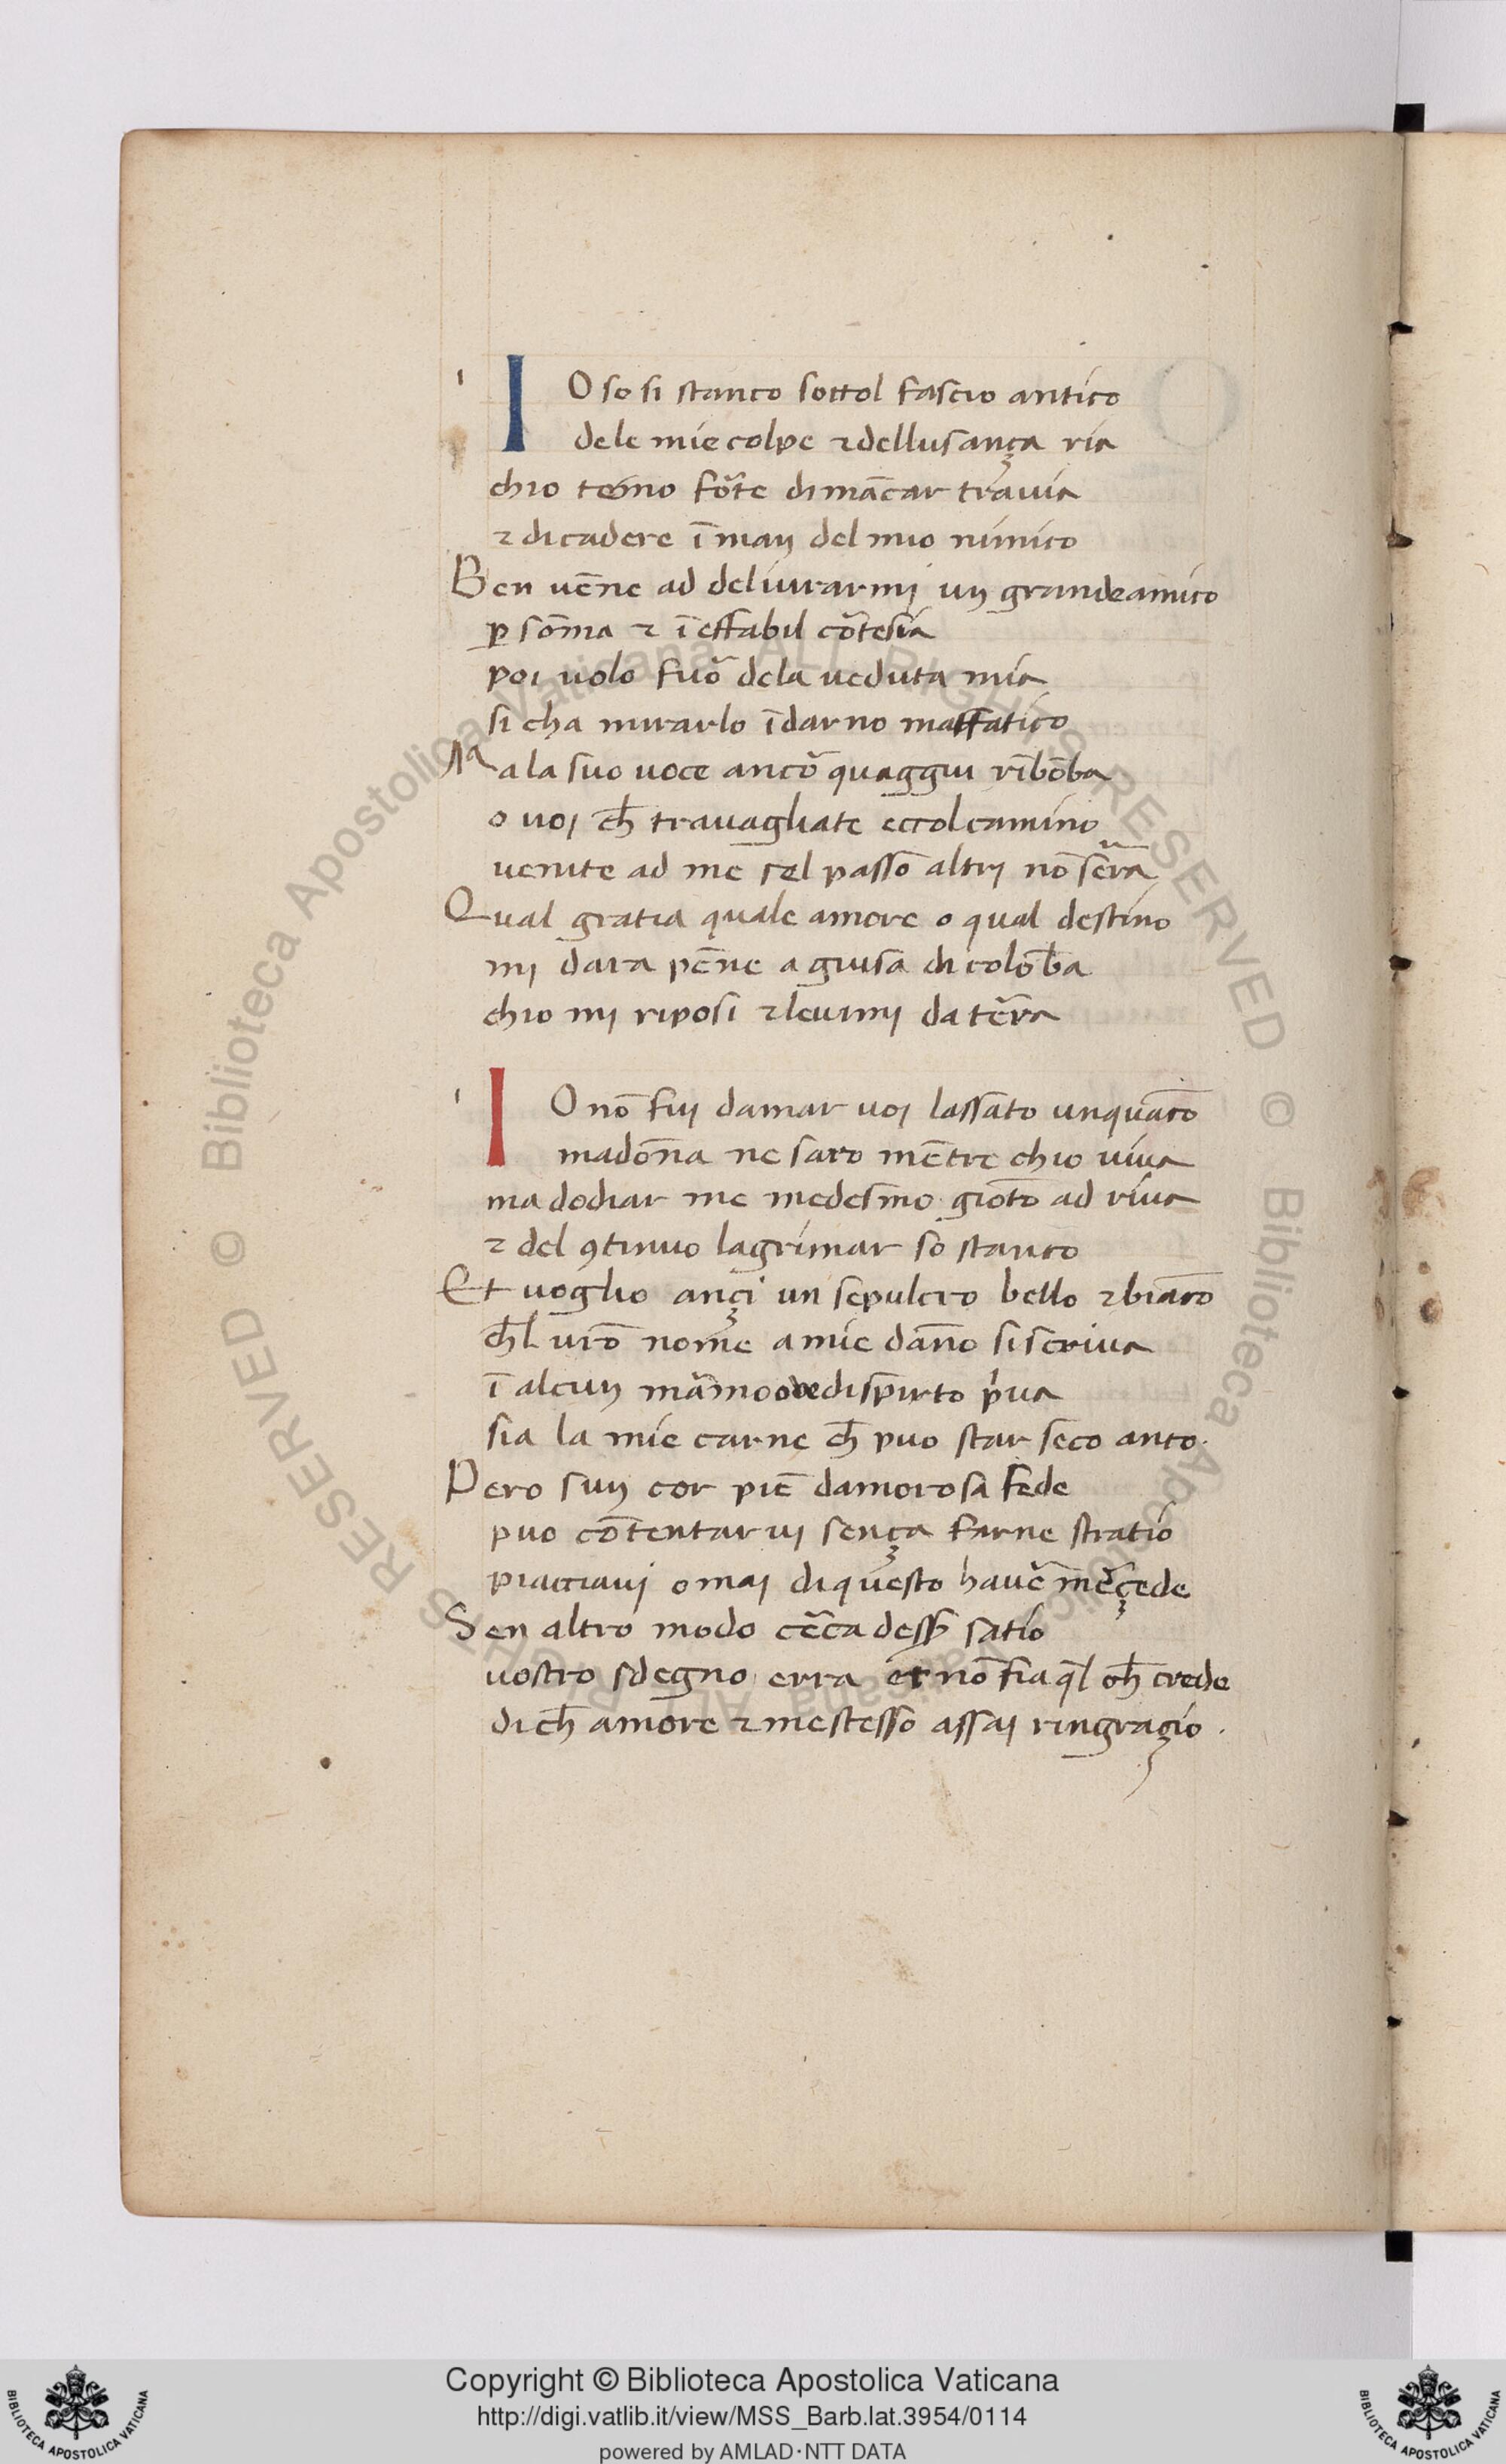 IO so si stanco sottol fascio antico
dele mie colpe ⁊ dellusança ria
chio temo fo᷑te di mācar tra uia
⁊ di cadere ī man del mio nimico
Ben uēne ad deliurarmi un grande amico
ꝑ sōma ⁊ ī effabil co᷑tesia
poi uolo fuo᷑ dela ueduta mia
si cha mirarlo īdarno maffatico
Ma ala suo uoce anco᷑ quaggiu rībōba
o uoi cħ trauagliate eccol camino
uenite ad me sel passo altri nō serra
Qual gratia quale amore o qual destino
mi dara pēne a guisa di colōba
chio mi riposi ⁊ leuimi da te᷑ra
IO nō fui damar uoi lassato unquāco
madōna ne saro mētre chio uiua
ma dodiar me medesmo gioto ad riua
⁊ del ꝯtinuo lagrimar so stanco
Et uoglio ançi un sepulcro bello ⁊ biāco
cħl uro nome a mie dāno si scriua
ī alcun ma᷑mo oue di spirto pua
sia la mie carne cħ puo star seco anco.
Pero sun cor piē damorosa fede
puo cōtentar ui sença farne stratio
piacciaui omai di questo haue᷑ me᷑çede
Sen altro modo ce᷑ca desser satio
uostro sdegno erra et nō fia ql cħ crede
di cħ amore ⁊ me stesso assai ringraçio .
Copyright © Biblioteca Apostolica Vaticana
http://digi.vatlib.it/view/MSS_Barb.lat.3954/0114
powered by AMLAD·NTT DATA